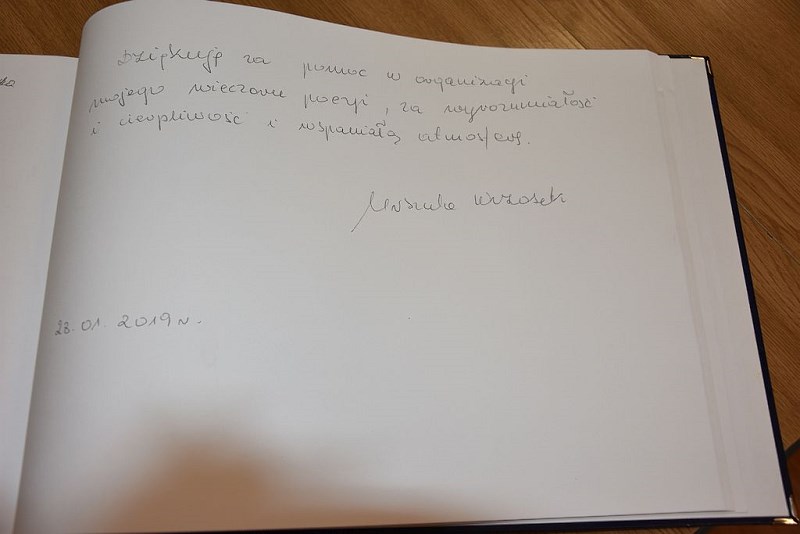 Dziękuję za pomoc w organizacji
mojego wieczoru poezji, za wyrozumiałość
i cierpliwość i wspaniałą atmosferę.
Urszula Wrzosek
23.01.2019 r.